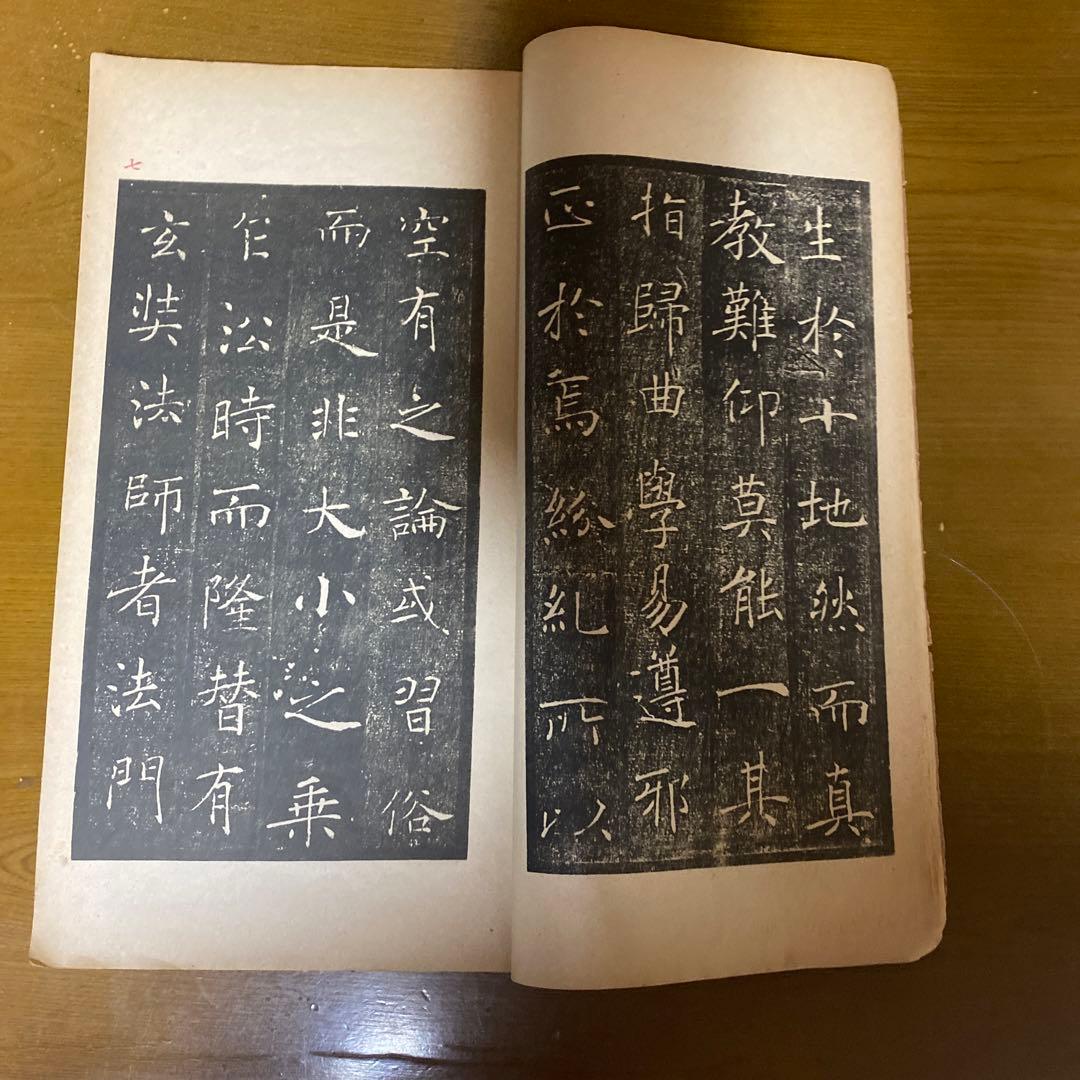 生於十地然而真
教難仰莫能一其
指歸曲學易遵邪
正於焉紛糺所以
空有之論或習俗
而是非大小之乗
乍㳂時而隆替有
玄奘法師者法門
七